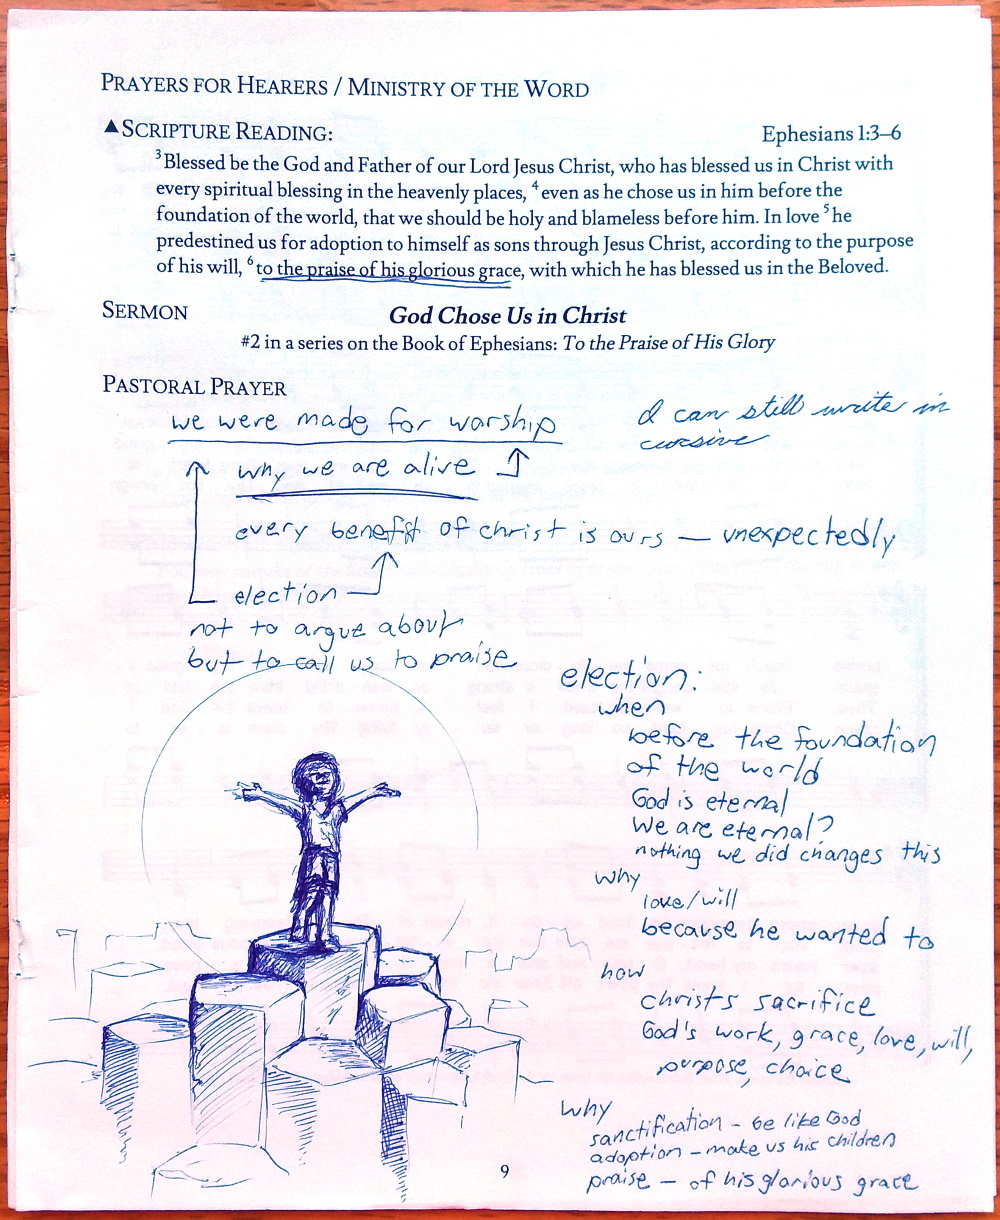 PRAYERS FOR HEARERS / MINISTRY OF THE WORD
▲SCRIPTURE READING: Ephesians 1:3–6
3Blessed be the God and Father of our Lord Jesus Christ, who has blessed us in Christ with
every spiritual blessing in the heavenly places, 4even as he chose us in him before the
foundation of the world, that we should be holy and blameless before him. In love 5he
predestined us for adoption to himself as sons through Jesus Christ, according to the purpose
of his will, 6to the praise of his glorious grace, with which he has blessed us in the Beloved.
SERMON God Chose Us in Christ
#2 in a series on the Book of Ephesians: To the Praise of His Glory
PASTORAL PRAYER
we were made for worship
I can still write in
cursive
why we are alive
every benefit of christ is ours — unexpectedly
election
not to argue about
but to call us to praise
election:
when
before the foundation
of the world
God is eternal
We are eternal?
nothing we did changes this
why
love/will
because he wanted to
how
christs sacrifice
God's work, grace, love, will,
purpose, choice
why
sanctification - be like God
adoption - make us his children
praise - of his glorious grace
9